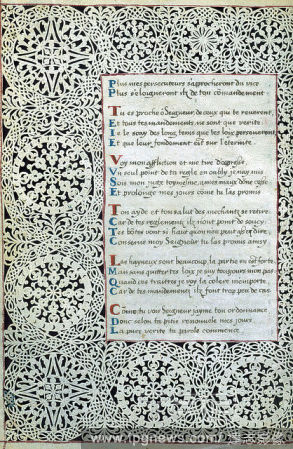 Plus mes persecuteurs s'aprocheront du vice
Plus s'eslogneront ilz de ton cõmandement
Tu es proche ô Seigneur de ceux qui te reverent
Et tous tes mandements ne sont que verité
Je le sçay des long temps que tes loix perseverent
Et que leur fondement est sur l'eternité
Voy mon affliction et me tire
Un seul point de ta regle en oubly je n'ay mis
Sois mon juge toymesme
Et prolonge mes jours come tu las promis
Ton ayde et ton salut des meschants se retire
Car de tes reglements ilz n'ont point de soucy
Tes bôtez vont si haut qu'on
Conserve moy Seigneur tu las promis
Les hayneux sont beaucoup la partie en est forte
Mais sans quitter tes loix je suy tousjours mon pas
Quand ces traitres je voy la colere m'emporte
Car de tes mandements ilz font trop peu de cas
Côme tu vois Seigneur jayme ton ordonnance
Donc selon ta pitié renouvelle mes jours
La pure verité ta parole commence
www.ipgnews.com